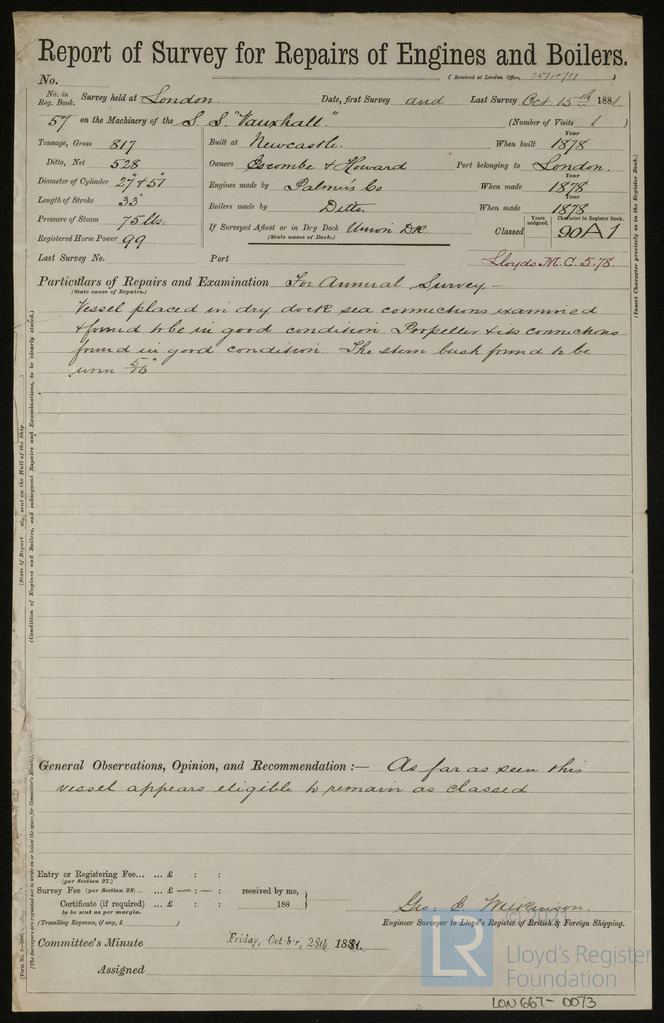 Report of Survey for Repairs of Engines and Boilers.
No. (Received at London Office, 25/10/81 )
No. in Reg. Book. Survey held at London. Date, first Survey and Last Survey Oct 15th 1881
57 on the Machinery of the S. S. "Vauxhall" (Number of Visits 1 )
Tonnage, Gross 817 Built at Newcastle. When built Year 1878
Ditto, Net 528 Owners Escombe & Howard Port belonging to London.
Diameter of Cylinder 27" + 51" Engines made by Palmers Co When made Year 1878
Length of Stroke 33" Boilers made by Ditto. When made Year 1878
Pressure of Steam 75 lbs. If Surveyed Afloat or in Dry Dock Union DK Classed Years assigned. Character in Register Book. 90A1
(State name of Dock.)
Registered Horse Power 99
Last Survey No. Port Lloyds M.C. 5.78
Particulars of Repairs and Examination For Annual Survey –
(State cause of Repairs.)
Vessel placed in dry dock sea connections examined
& found to be in good condition. Propeller & its connections
found in good condition. The stern bush found to be
worn 5/16"
General Observations, Opinion, and Recommendation :— As far as seen this
vessel appears eligible to remain as classed
Entry or Registering Fee... ... £ : :
(per Section 27.)
Survey Fee (per Section 28) ... ... £ — : — : received by me,
Certificate (if required) ... £ : : 188
to be sent as per margin.
(Travelling Expenses, if any, £ )
Geo. C.
Engineer Surveyor to Lloyd's Register of British & Foreign Shipping.
Committee's Minute Friday, October, 28th 1881.
Assigned
(Insert Character precisely as in the Register Book.)
(State if Report sent on the Hull of the Ship
(Condition of Engines and Boilers, and subsequent Repairs and Examinations, to be clearly stated.)
(The Surveyors are requested not to write on or below the space for Committee's Minute.)
© 2021
LR
Lloyd's Register
Foundation
LON 667-0073